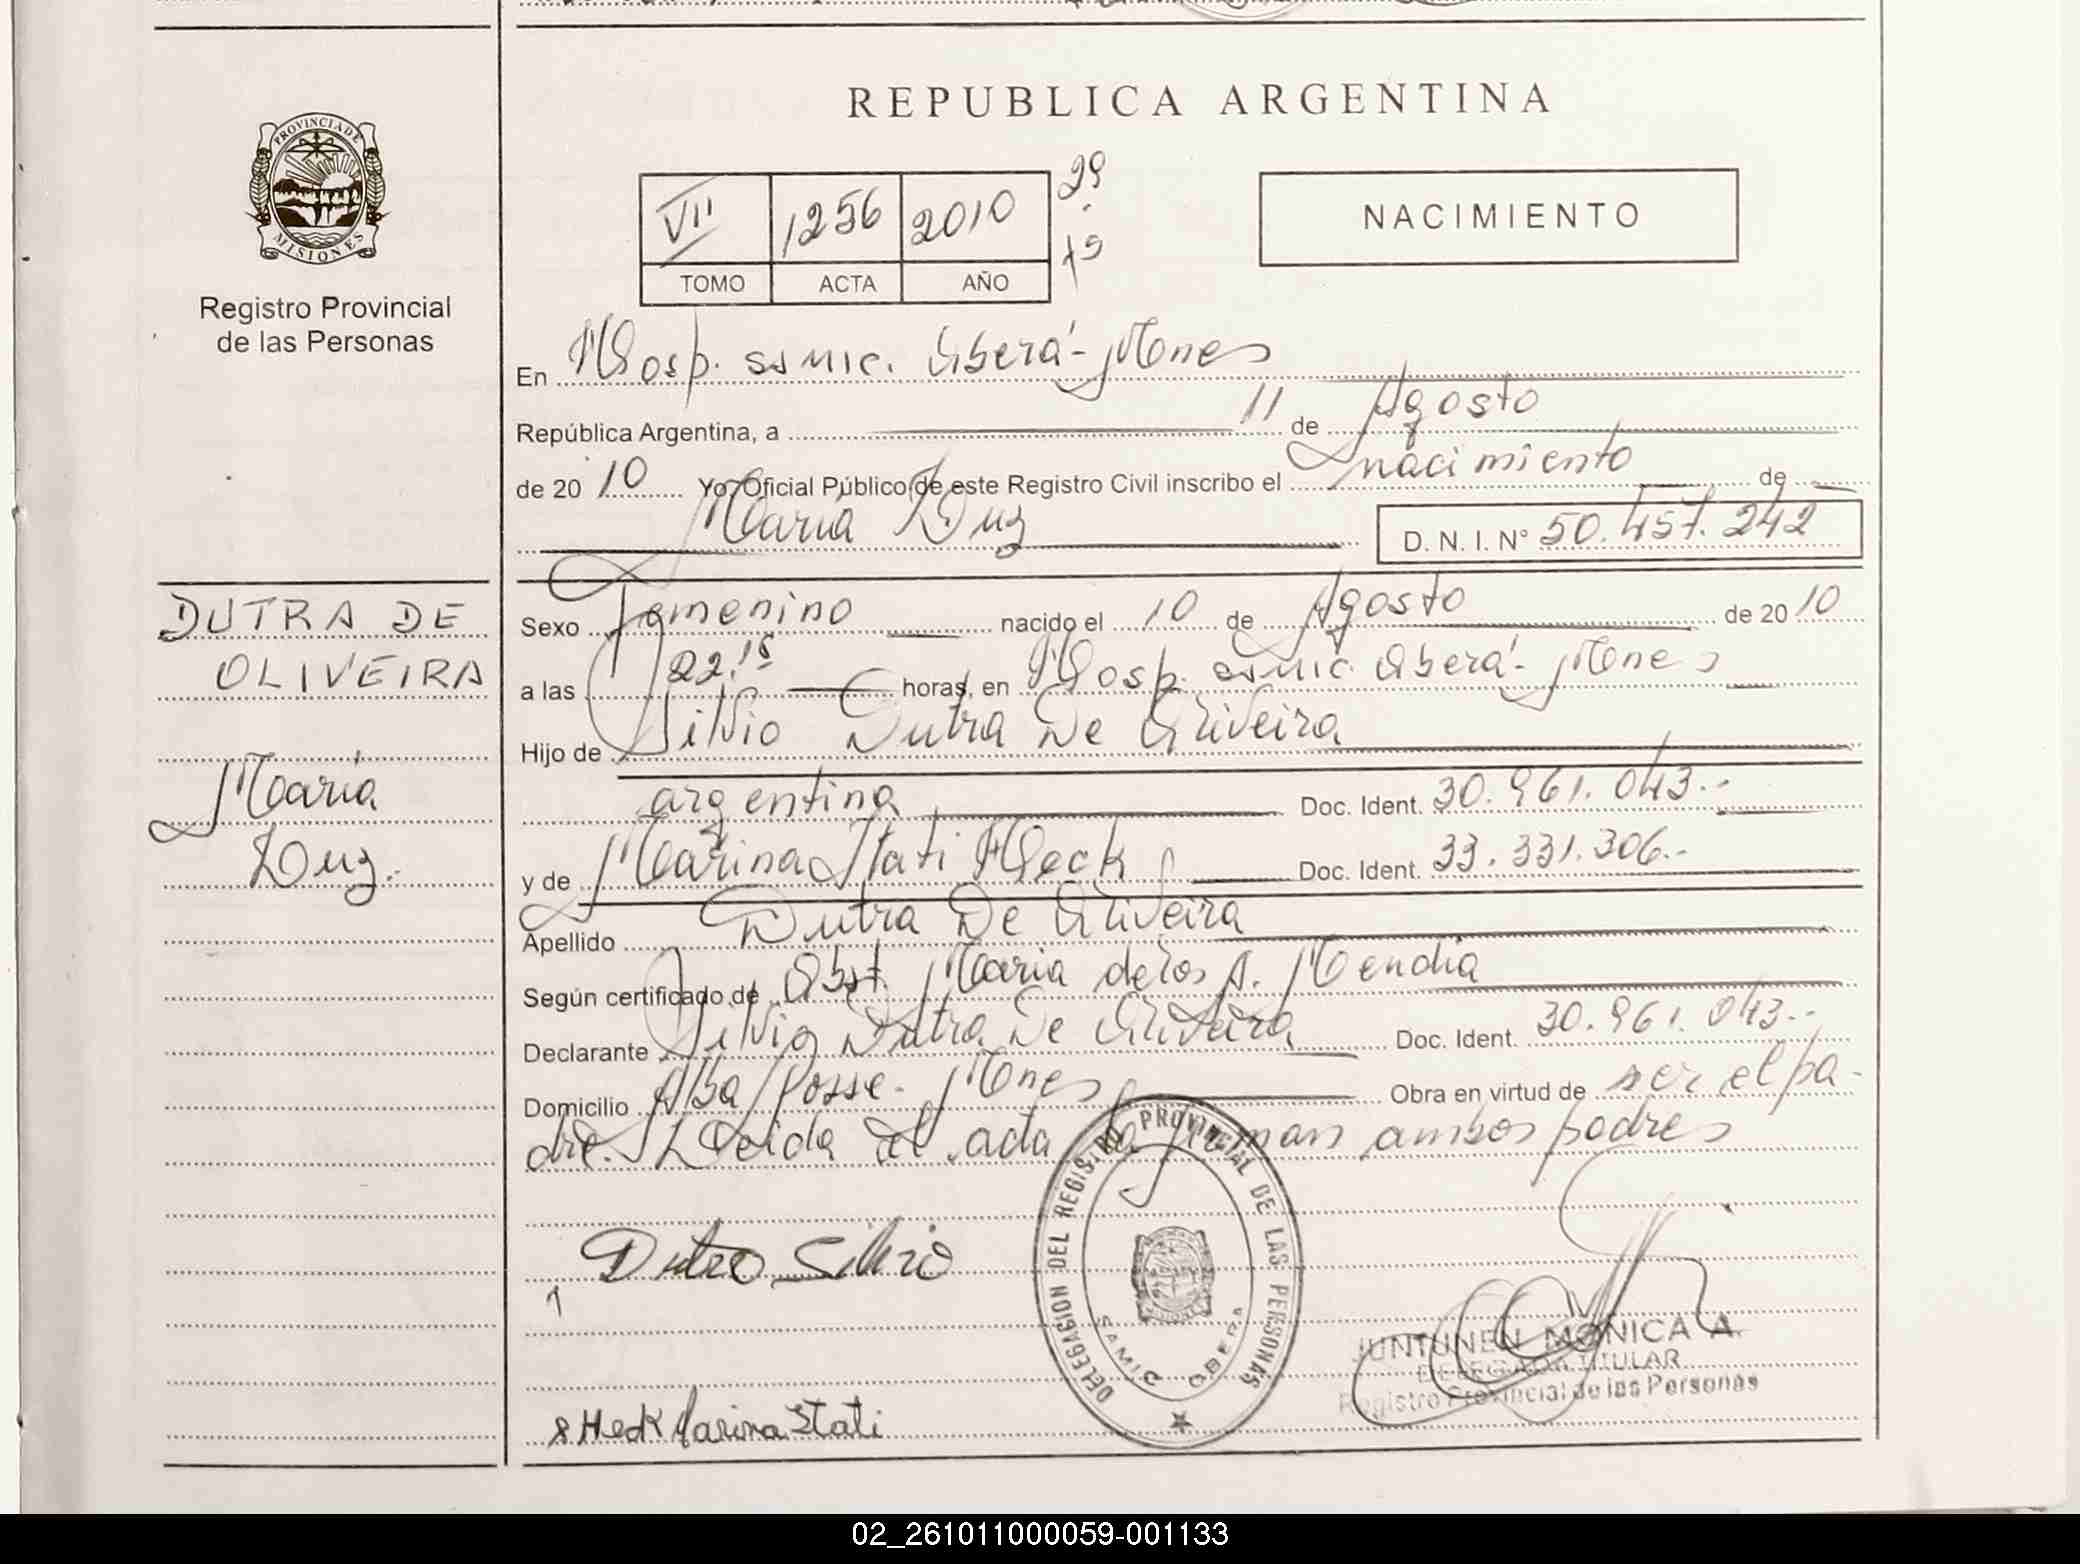 REPUBLICA ARGENTINA
PROVINCIA DE MISIONES
Registro Provincial
de las Personas
VII 1256 2010 29
TOMO ACTA AÑO 15
NACIMIENTO
En Hosp. ssmic. Oberá - Mones
República Argentina, a 11 de Agosto
de 2010 Yo, Oficial Público de este Registro Civil inscribo el nacimiento de
María Luz D. N. I. N° 50.457.242
DUTRA DE
OLIVEIRA
María
Luz.
Sexo Femenino nacido el 10 de Agosto de 2010
a las 22.15 horas, en Hosp. ssmic Oberá - Mones
Hijo de Silvio Dutra De Oliveira
argentina Doc. Ident. 30.961.043.-
y de Marina Itati Heck Doc. Ident. 33.331.306.-
Apellido Dutra De Oliveira
Según certificado de Obst. María de los A. Mendia
Declarante Silvio Dutra De Oliveira Doc. Ident. 30.961.043.-
Domicilio Alba Posse - Mones Obra en virtud de ser el pa-
dre. Leida el acta la firman ambos padres
Dutra Silvio
DELEGACION DEL REGISTRO PROVINCIAL DE LAS PERSONAS
SAMIC OBERA
JUNTUNEN MONICA A.
DELEGADA TITULAR
Registro Provincial de las Personas
Heck Marina Itati
02_261011000059-001133